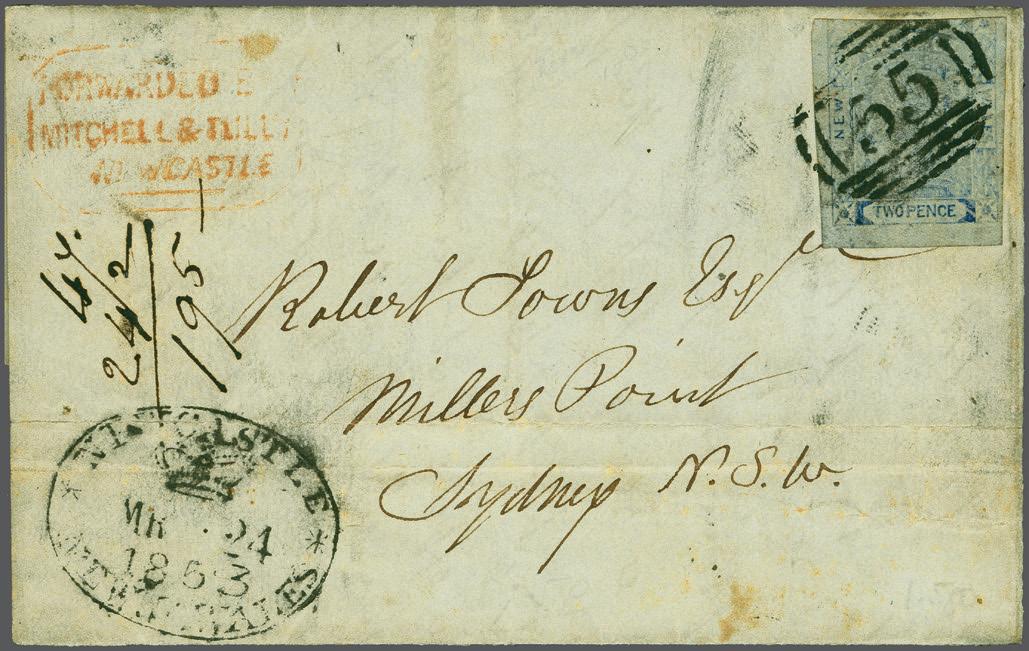 FORWARDED
MITCHELL & TULLY
NEWCASTLE
55
NEW
TWO PENCE
44.
242
195
Robert Towns Esqre
Millers Point
Sydney N.S.W.
NEWCASTLE
MR 24
1853
NEW S WALES